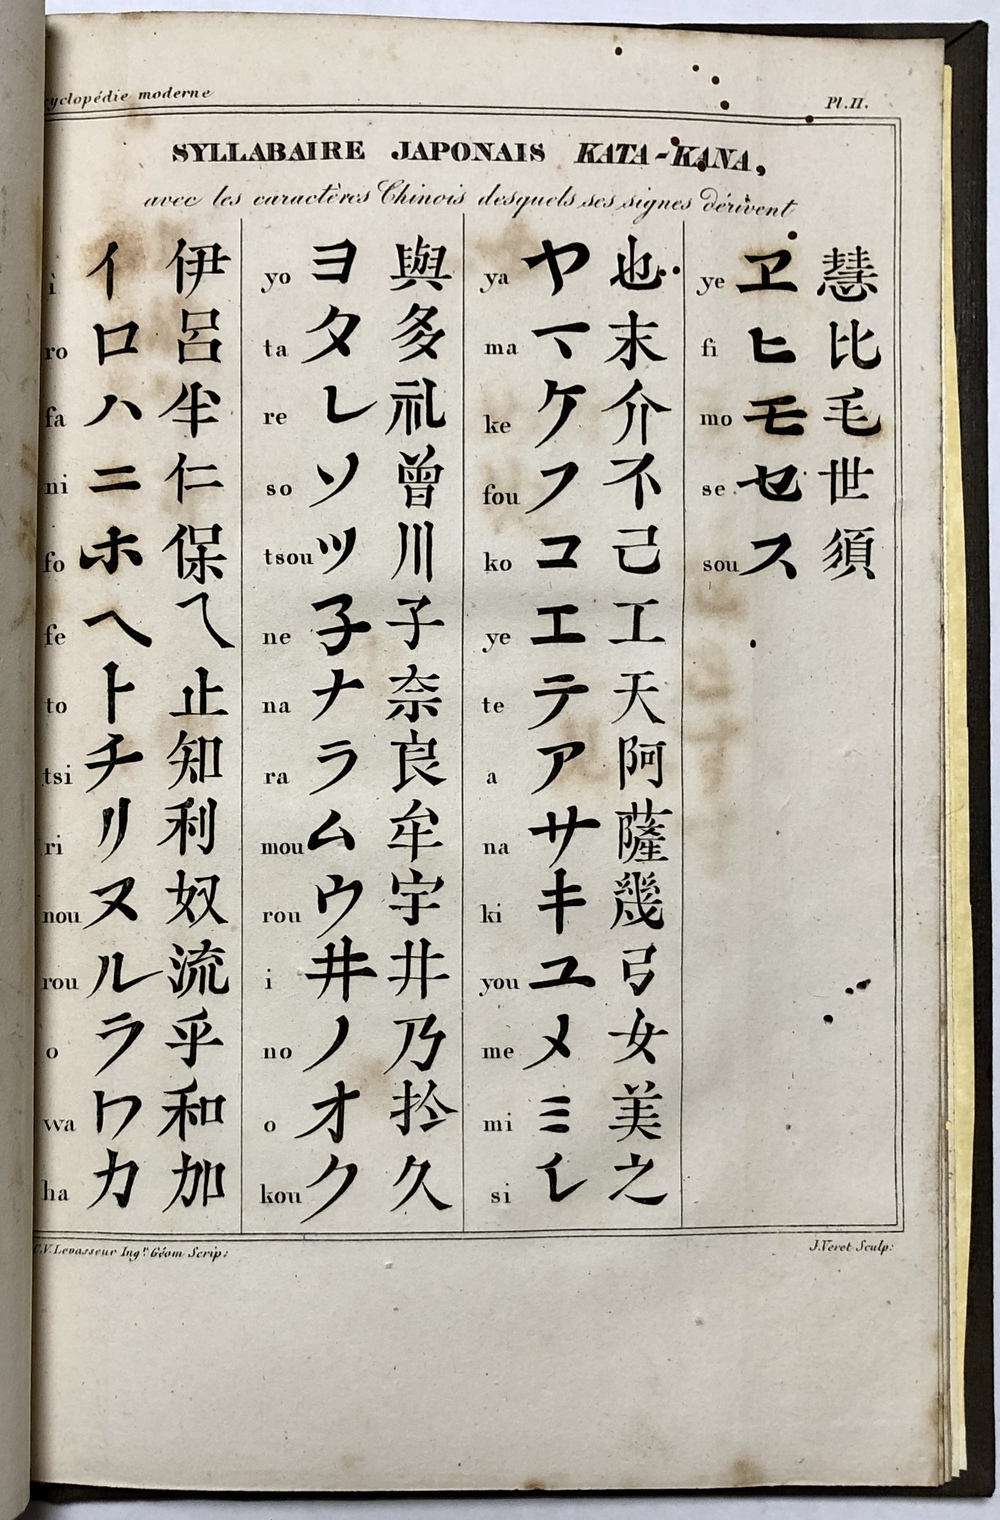 cyclopédie moderne
Pl. II.
SYLLABAIRE JAPONAIS KATA-KANA,
avec les caractères Chinois desquels ses signes dérivent
i イ 伊
ro ロ 呂
fa ハ 半
ni ニ 仁
fo ホ 保
fe ヘ
to ト 止
tsi チ 知
ri リ 利
nou ヌ 奴
rou ル 流
o ヲ 乎
wa ワ 和
ha カ 加
yo ヨ 與
ta タ 多
re レ 礼
so ソ 曾
tsou ツ 川
ne 子 子
na ナ 奈
ra ラ 良
mou ム 牟
rou ウ 宇
i 井 井
no ノ 乃
o オ 扵
kou ク 久
ya ヤ 也
ma マ 末
ke ケ 介
fou フ 不
ko コ 己
ye エ 工
te テ 天
a ア 阿
na サ 薩
ki キ 幾
you ユ 弓
me メ 女
mi ミ 美
si シ 之
ye ヱ 慧
fi ヒ 比
mo モ 毛
se セ 世
sou ス 須
C.V. Levasseur Ingr. Géom Scrip:
J. Veret Sculp: